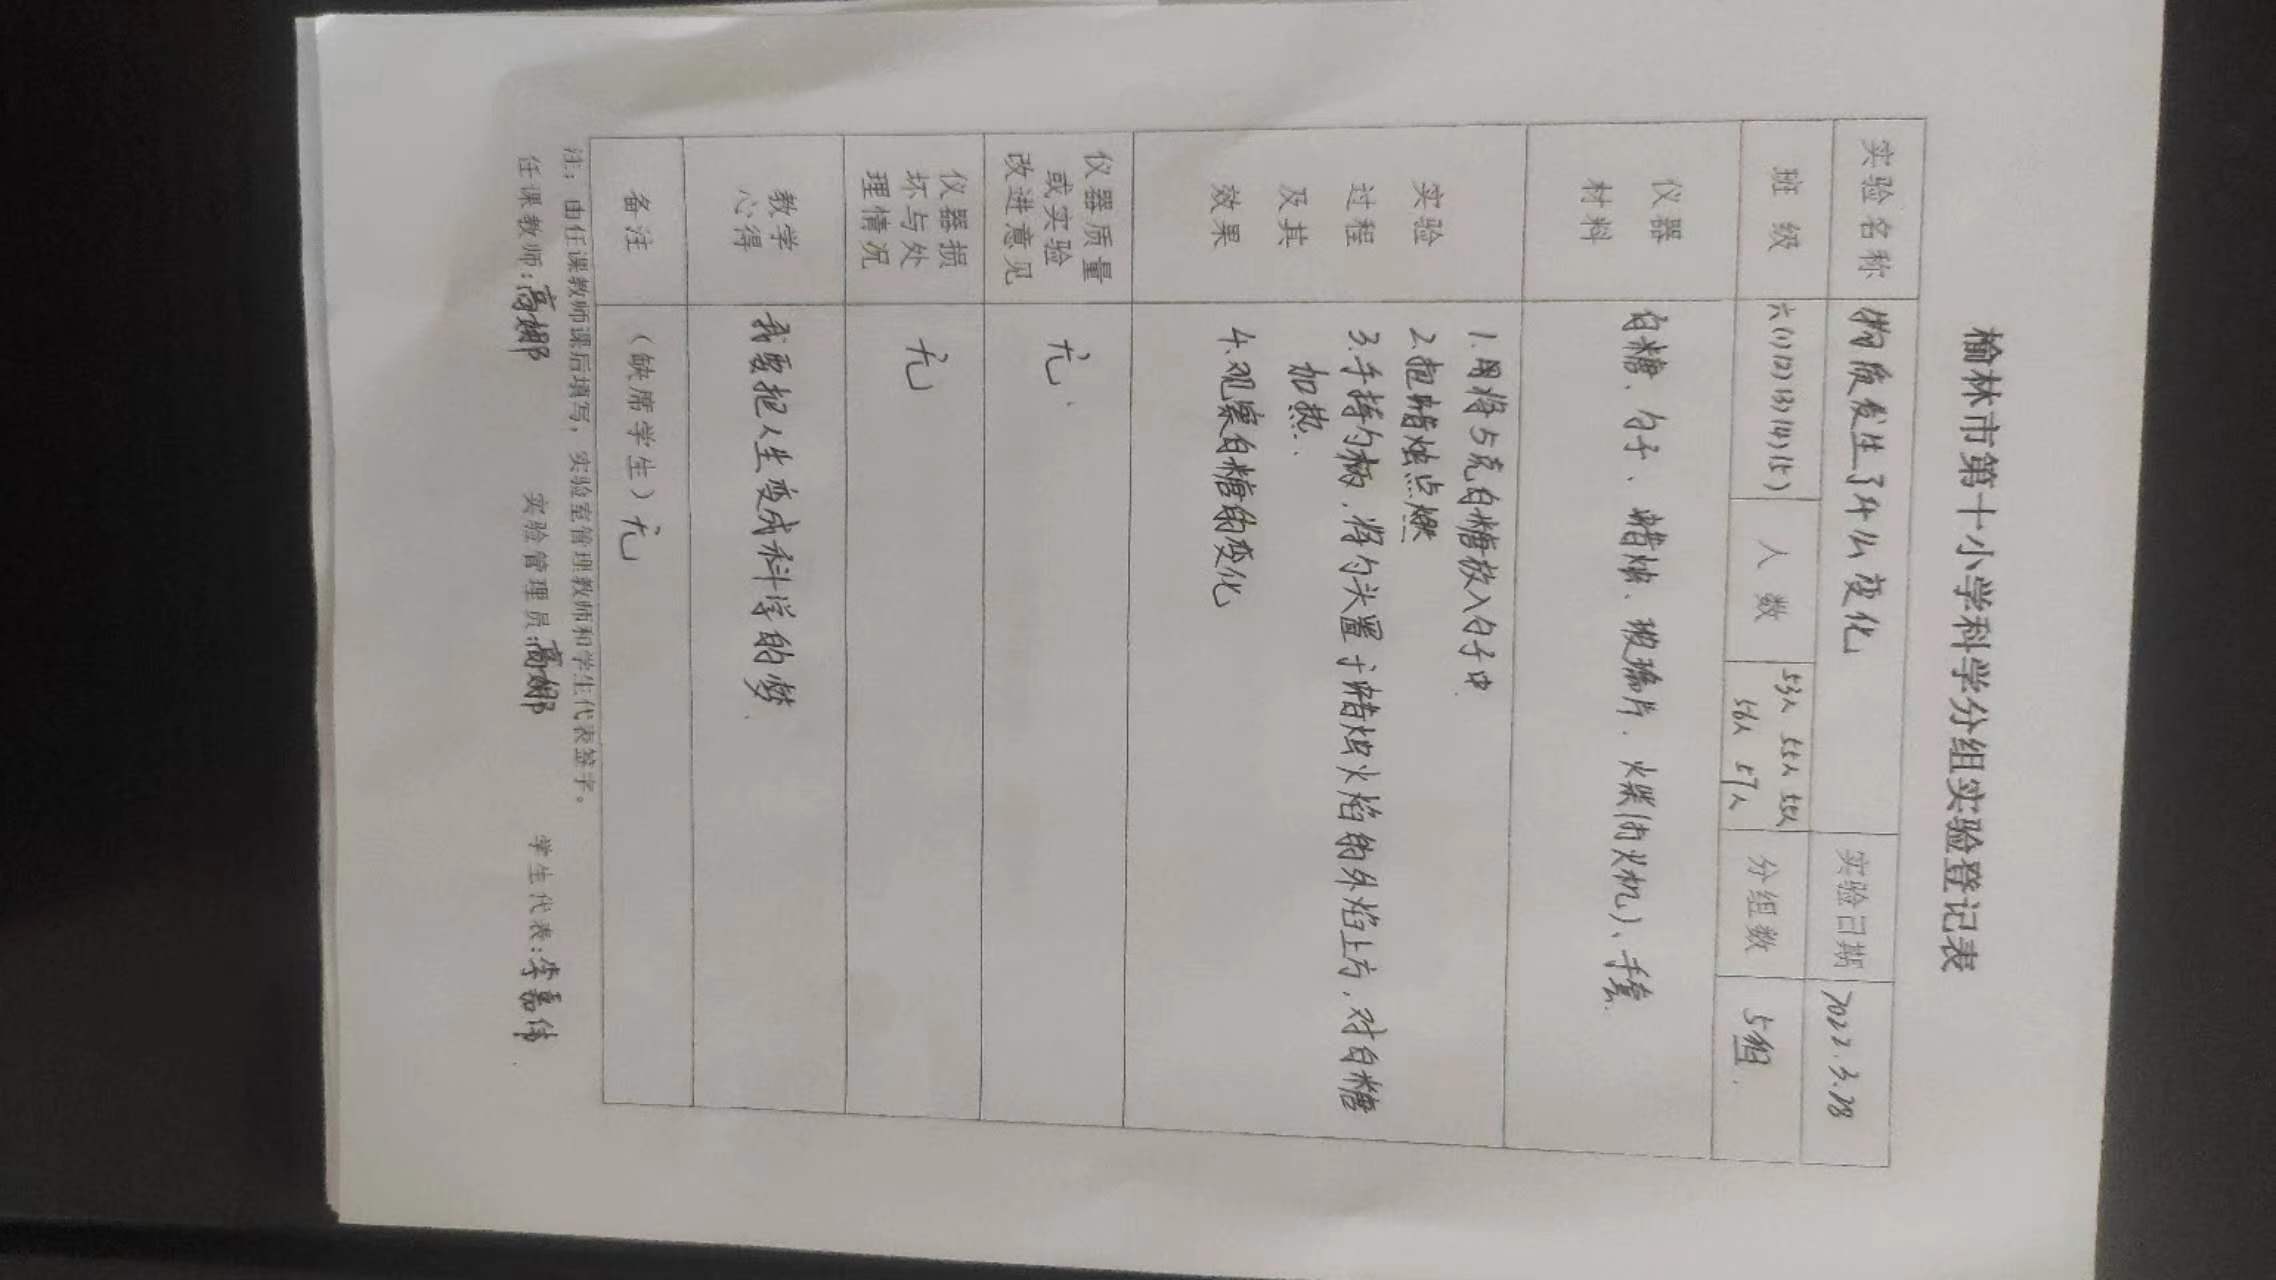 榆林市第十小学科学分组实验登记表
实验名称 物质发生了什么变化 实验日期 2022.3.28
班级 六(1)(2)(3)(4)(5) 人数 53人 55人 55人 分组数 5组.
56人 57人
仪器 白糖、勺子、蜡烛、玻璃片、火柴(打火机)、手套
材料
实验 1.用将5克白糖放入勺子中
过程 2.把蜡烛点燃
及其 3.手持勺柄,将勺头置于蜡烛火焰的外焰上方,对白糖
加热.
效果 4.观察白糖的变化
仪器质量
或实验 无.
改进意见
仪器损
坏与处 无
理情况
教学 我要把人生变成科学的梦.
心得
备注 (缺席学生)无
注:由任课教师课后填写,实验室管理教师和学生代表签字。
任课教师:高娜 实验管理员:高娜 学生代表:李嘉伟